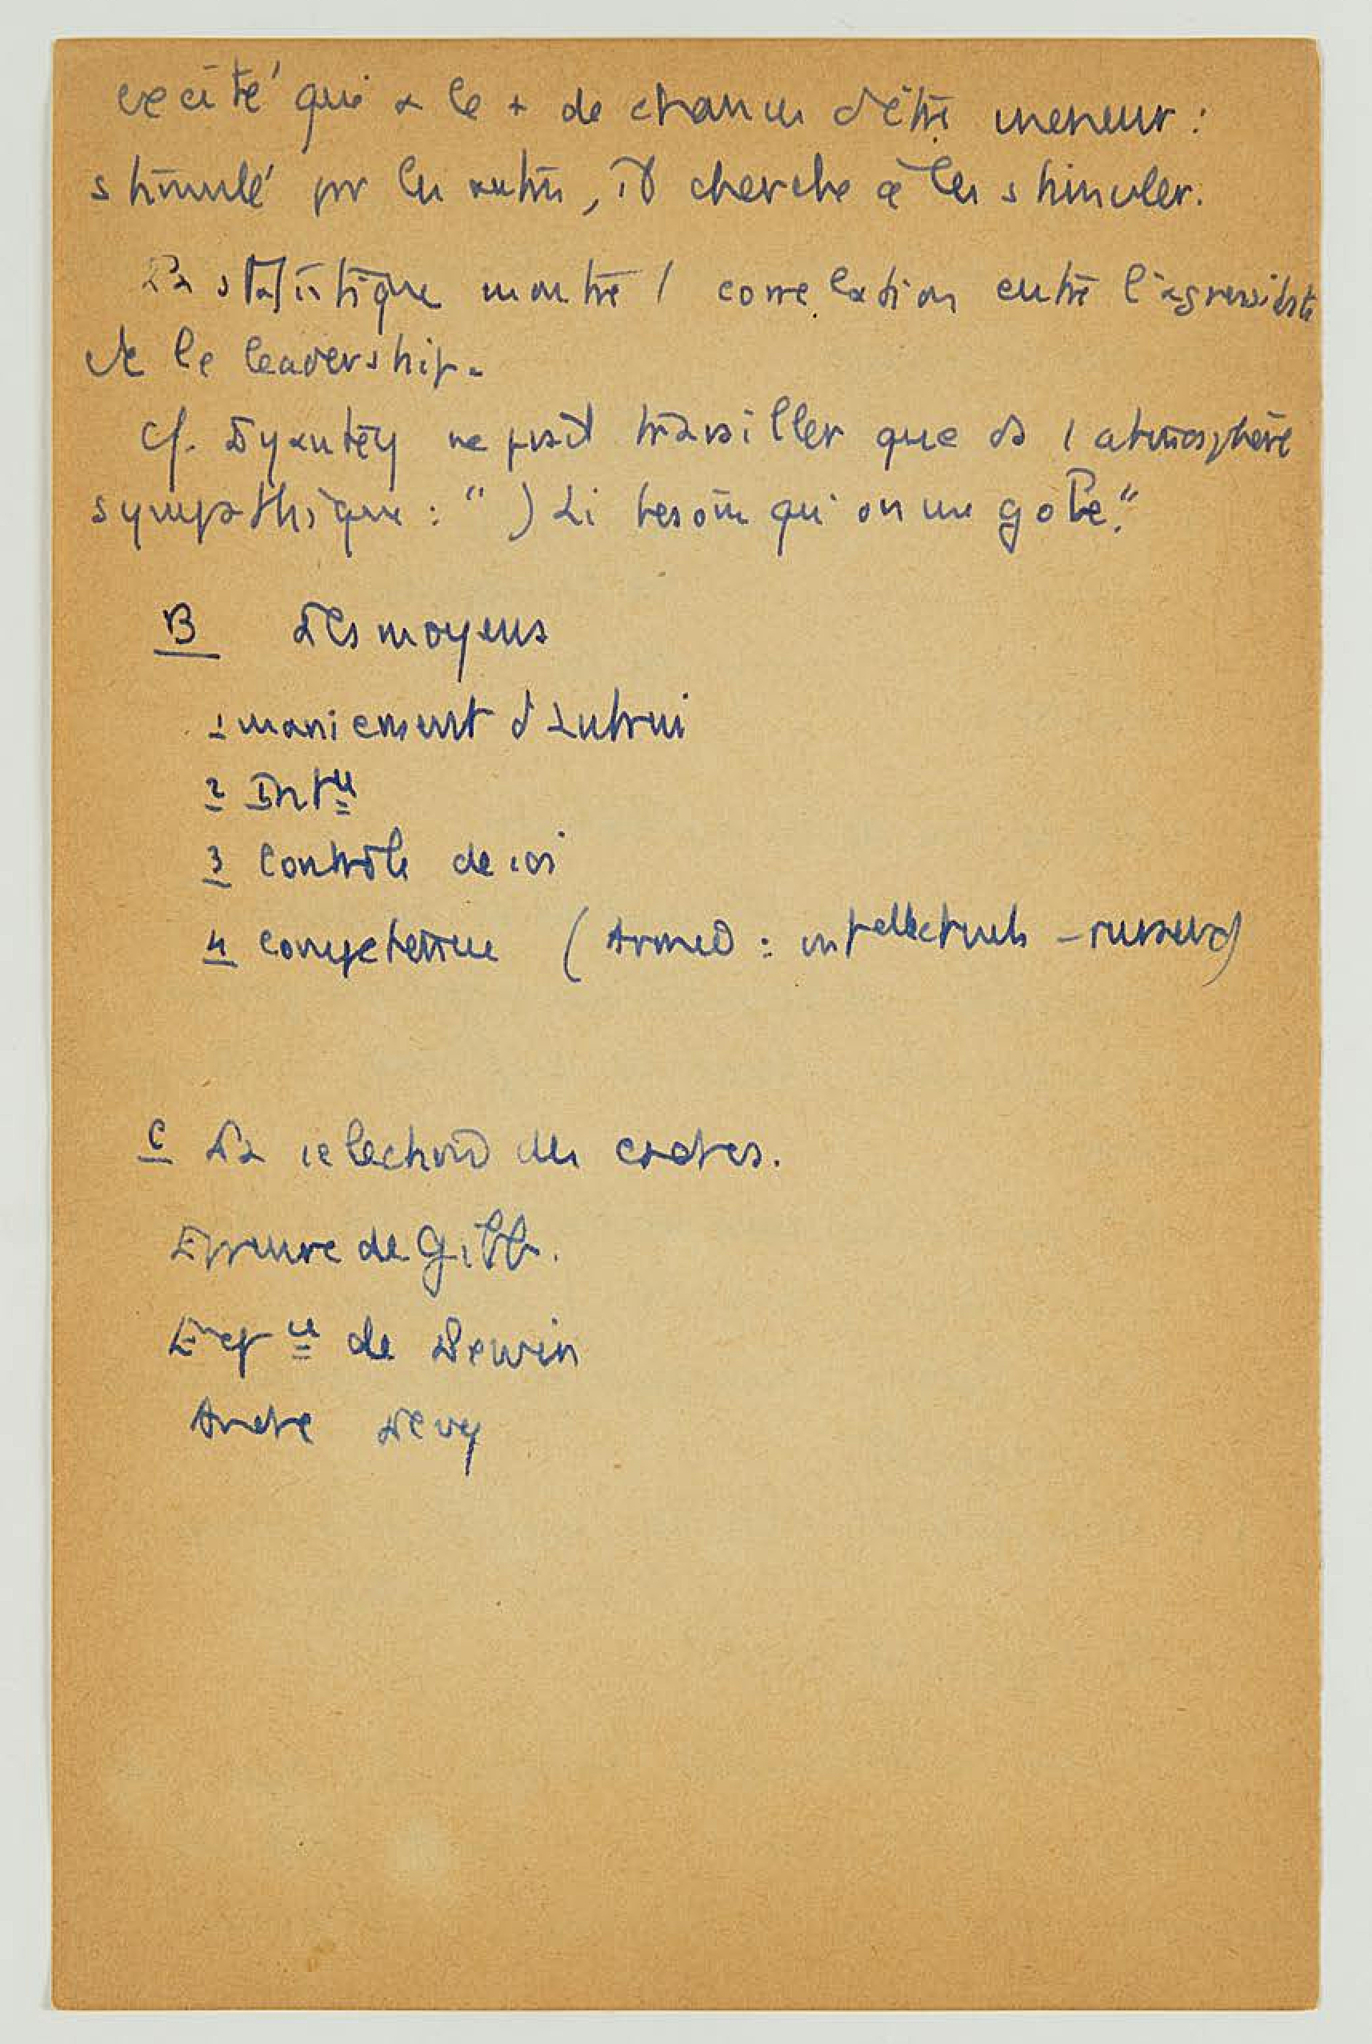 excité qui a le + de chances d'être meneur :
stimulé par les autres, il cherche à les stimuler.
La statistique montre 1 corrélation entre l'agressivité
et le leadership.
Cf. Lyautey ne peut travailler que ds 1 atmosphère
sympathique : " J'ai besoin qu'on me gobe."
B Les moyens
1 maniement d'autrui
2 Int<sup>ce</sup>
3 Contrôle de soi
4 compétence ( Armée : intellectuels - )
C La sélection des cadres.
Epreuve de Gibb.
Exp<sup>ce</sup> de Lewin
André Lévy